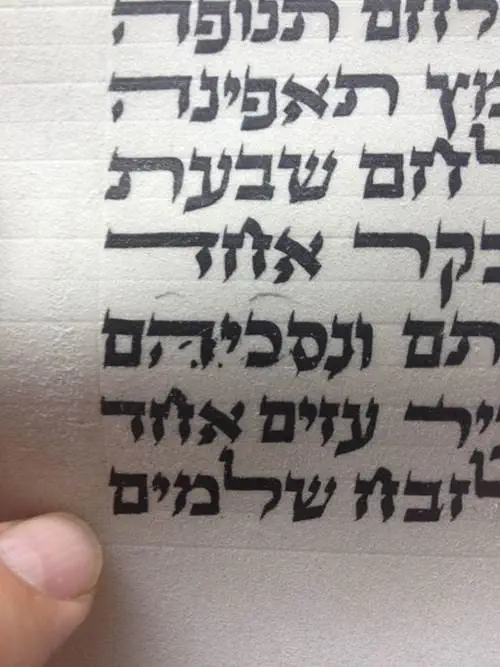 לחם תנופה
מץ תאפינה
לחם שבעת
בקר אחד
תם ונסכיהם
יר עזים אחד
לזבח שלמים